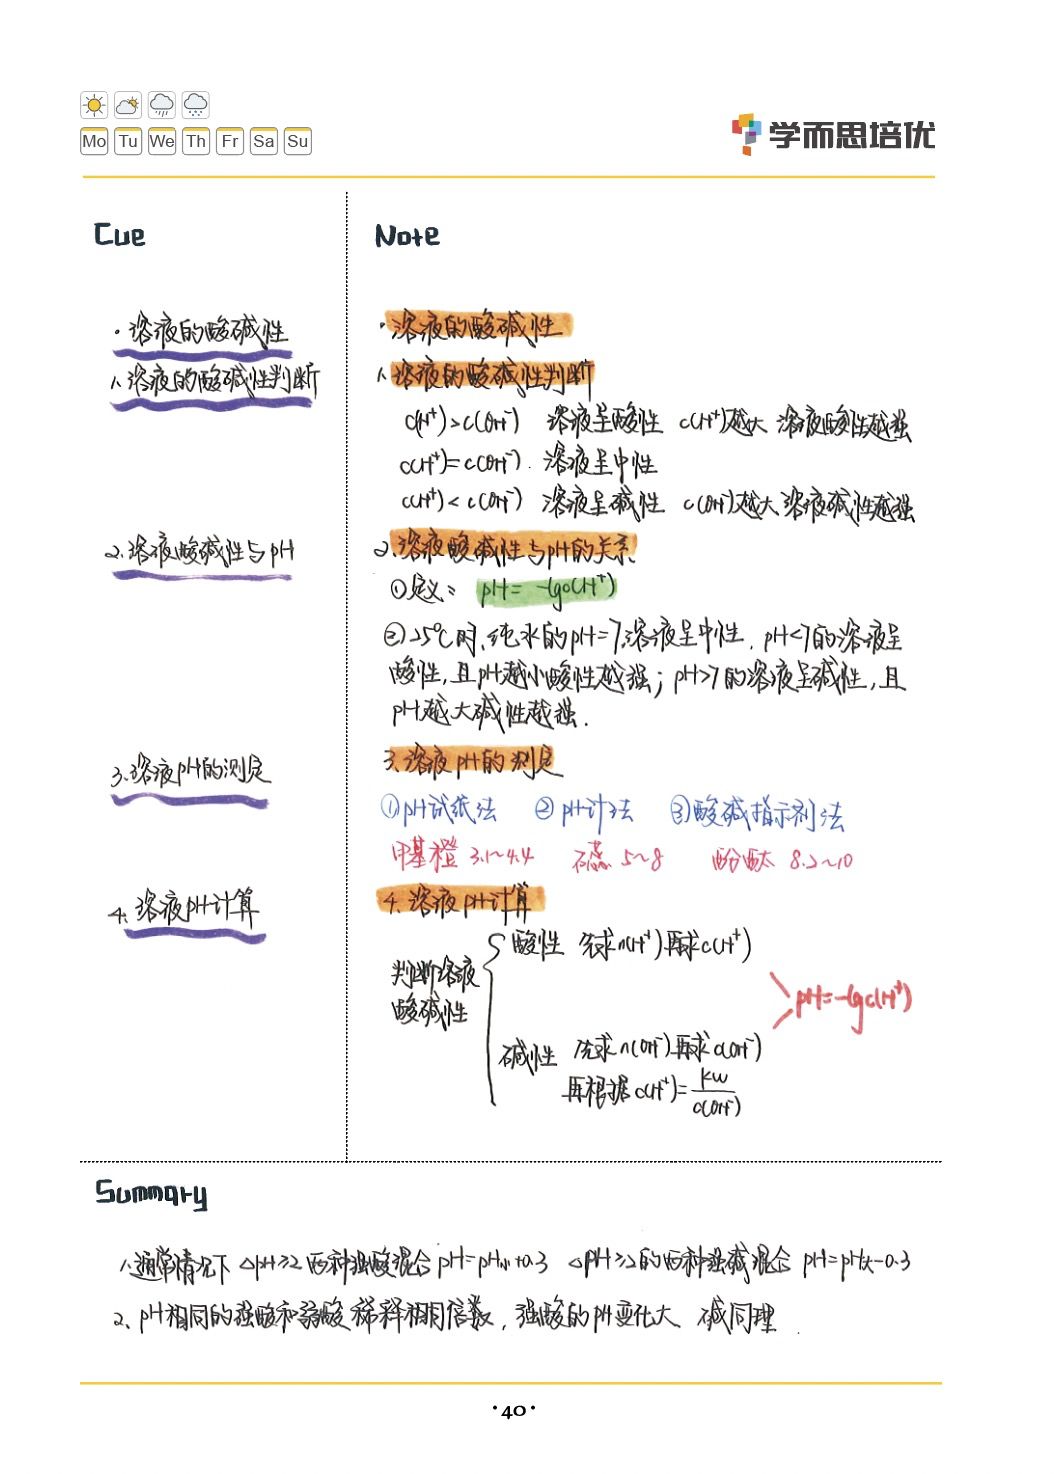 Mo Tu We Th Fr Sa Su
学而思培优
Cue
·溶液的酸碱性
1、溶液的酸碱性判断
2、溶液酸碱性与pH
3、溶液pH的测定
4、溶液pH计算
Note
·溶液的酸碱性
1、溶液的酸碱性判断
c(H⁺)>c(OH⁻) 溶液呈酸性 c(H⁺)越大 溶液酸性越强
c(H⁺)=c(OH⁻). 溶液呈中性
c(H⁺)<c(OH⁻) 溶液呈碱性 c(OH⁻)越大溶液碱性越强
2、溶液酸碱性与pH的关系
①定义: pH=-lgc(H⁺)
②25℃时,纯水的pH=7,溶液呈中性, pH<7的溶液呈
酸性,且pH越小酸性越强; pH>7的溶液呈碱性,且
pH越大碱性越强.
3、溶液pH的测定
①pH试纸法 ②pH计法 ③酸碱指示剂法
甲基橙 3.1~4.4 石蕊 5~8 酚酞 8.2~10
4、溶液pH计算
判断溶液
酸碱性
酸性 先求n(H⁺)再求c(H⁺)
pH=-lgc(H⁺)
碱性 先求n(OH⁻)再求c(OH⁻)
再根据c(H⁺)=kw/c(OH⁻)
Summary
1、通常情况下 △pH≥2两种强酸混合 pH=pH小+0.3 △pH≥2的两种强碱混合 pH=pH大-0.3
2、pH相同的强酸和弱酸 稀释相同倍数, 强酸的pH变化大 碱同理.
·40·